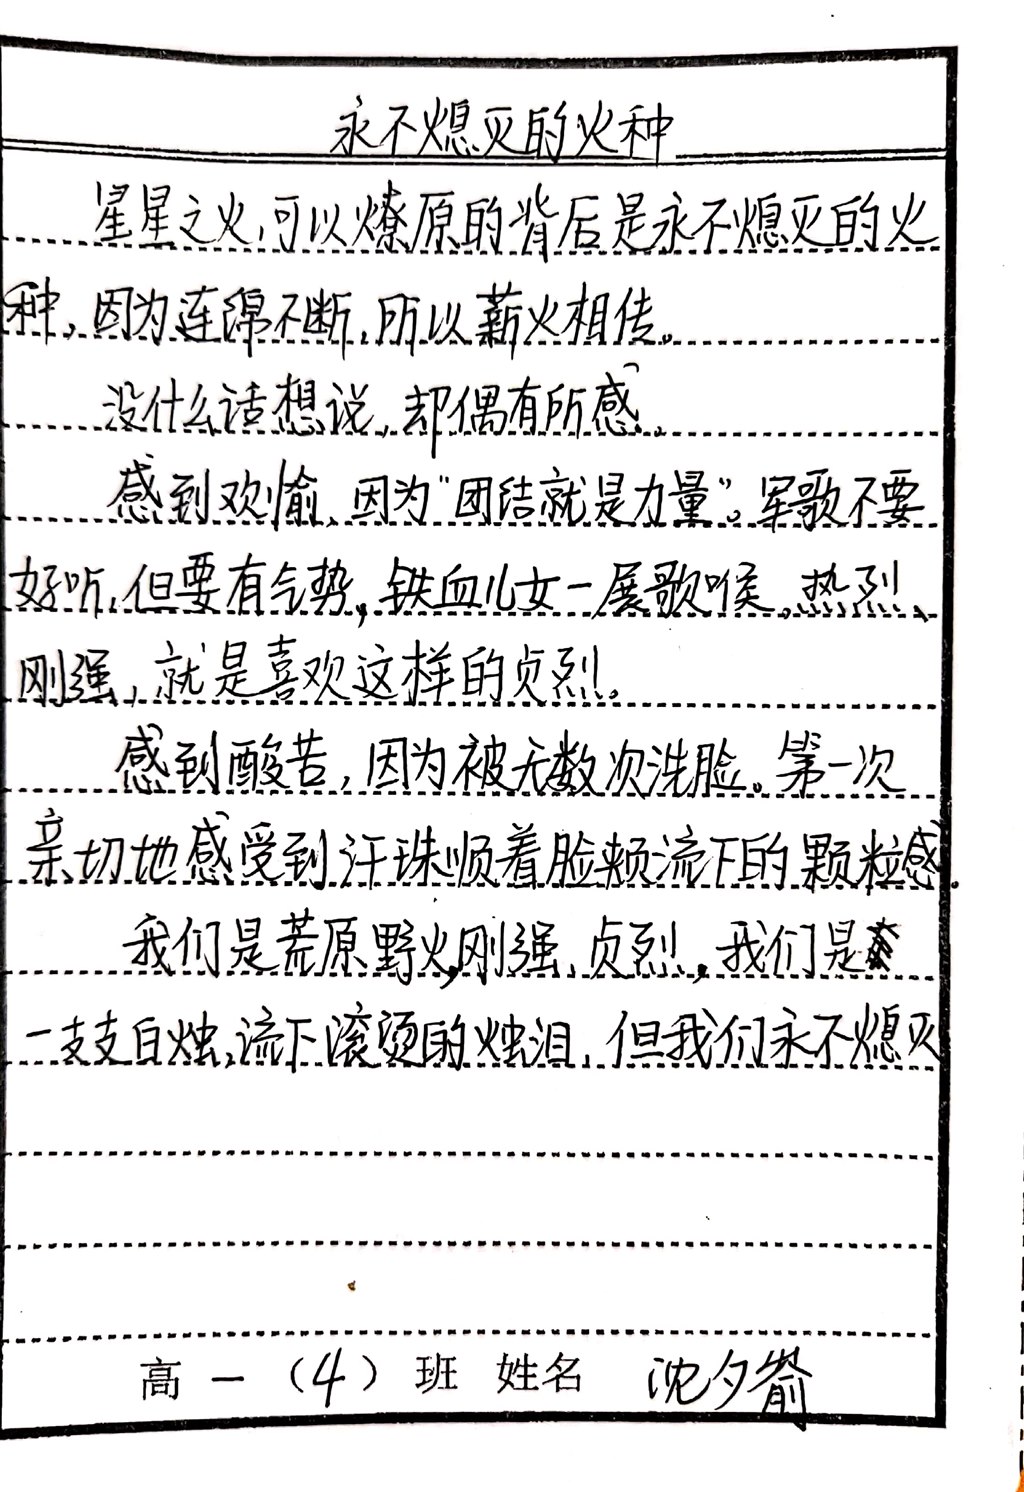 永不熄灭的火种
星星之火,可以燎原的背后是永不熄灭的火
种,因为连绵不断,所以薪火相传。
没什么话想说,却偶有所感。
感到欢愉、因为“团结就是力量”。军歌不要
好听,但要有气势,铁血儿女一展歌喉。热烈、
刚强,就是喜欢这样的贞烈。
感到酸苦,因为被无数次洗脸。第一次
亲切地感受到汗珠顺着脸颊流下的颗粒感。
我们是荒原野火,刚强、贞烈,我们是
一支支白烛,流下滚烫的烛泪,但我们永不熄灭
高一(4)班 姓名 沈夕